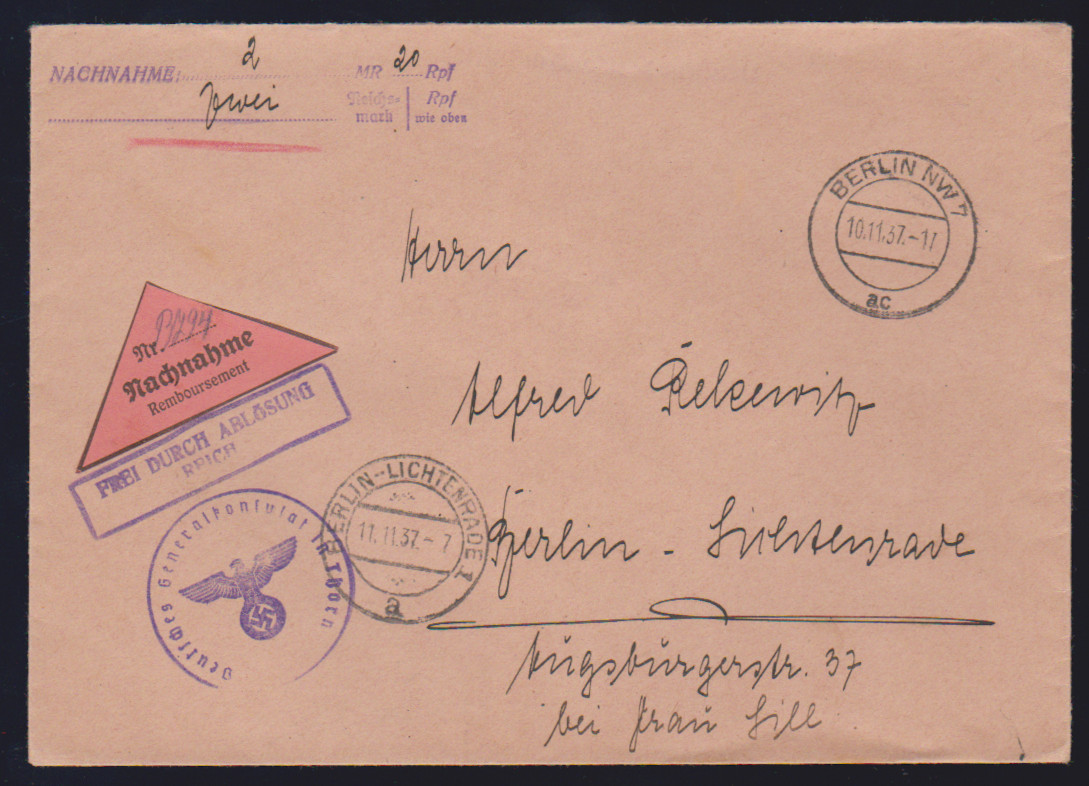 NACHNAHME: 2 MR 20 Rpf
zwei Reichs- Rpf
mark wie oben
BERLIN NW 7
10.11.37.-17
ac
Herrn
Nr.
Nachnahme
Remboursement
FREI DURCH ABLÖSUNG
REICH
Alfred Pelkewitz
BERLIN-LICHTENRADE 1
11.11.37.-7
a
Berlin - Lichtenrade
Deutsches Generalkonsulat in Thorn
Augsburgerstr. 37
bei Frau Sill